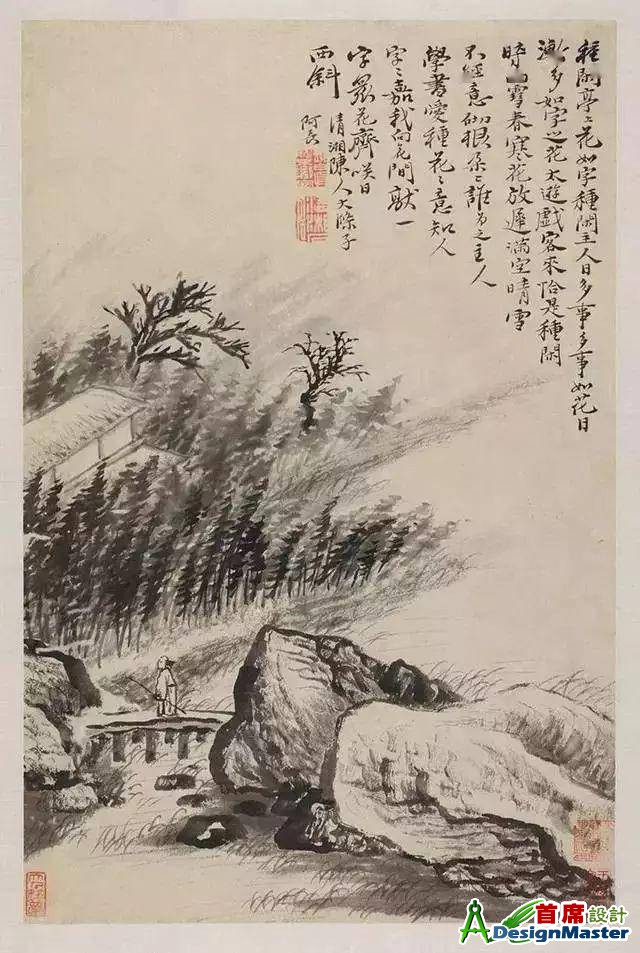 種閑亭上花如字種閑主人日多事多事如花日
漸多如字之花太遊戲客來恰是種閑
時雨雪春寒花放遲滿空晴雪
不經意砌根朵朵誰為之主人
學書愛種花花意知人
字字嘉我向花間獻一
字眾花齊咲日
西斜
清湘陳人大滌子
阿長
首席設計
DesignMaster